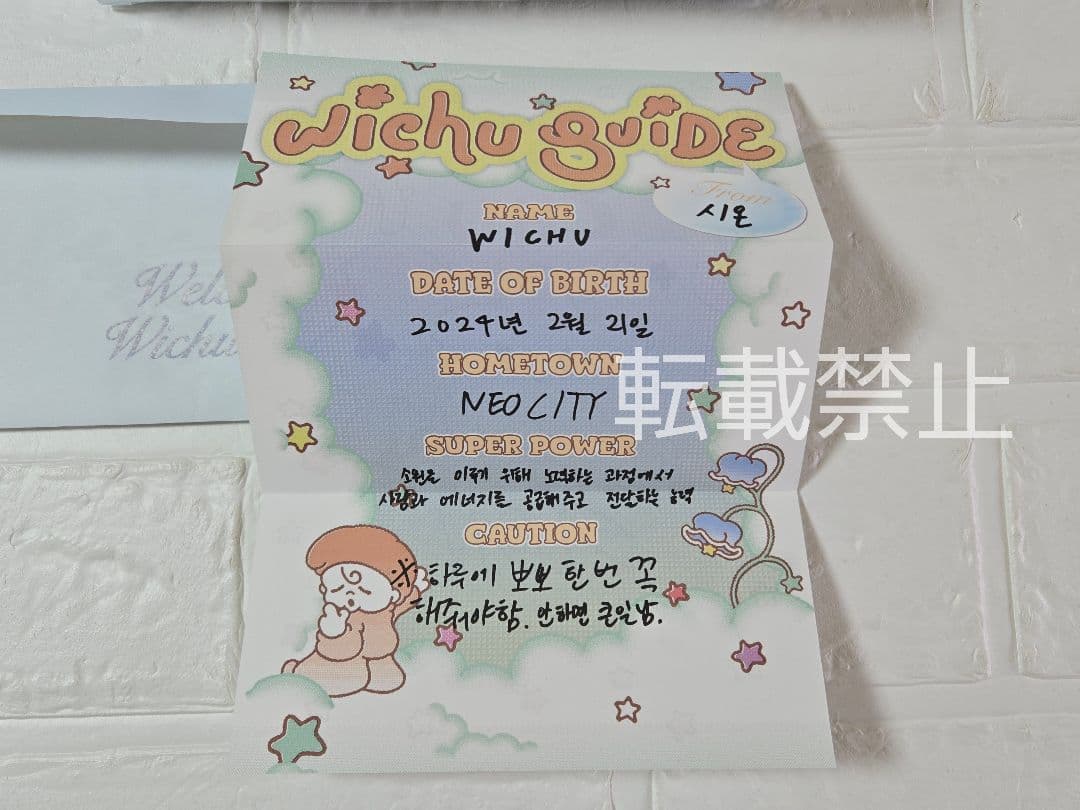 wichu guide
From
시온
NAME
WICHU
DATE OF BIRTH
2024년 2월 21일
HOMETOWN
NEO CITY
SUPER POWER
소원을 이루기 위해 노력하는 과정에서
사랑과 에너지를 공급해주고 전달하는 능력
CAUTION
※하루에 뽀뽀 한 번 꼭
해줘야함. 안하면 큰일남.
Welc
Wichu
転載禁止